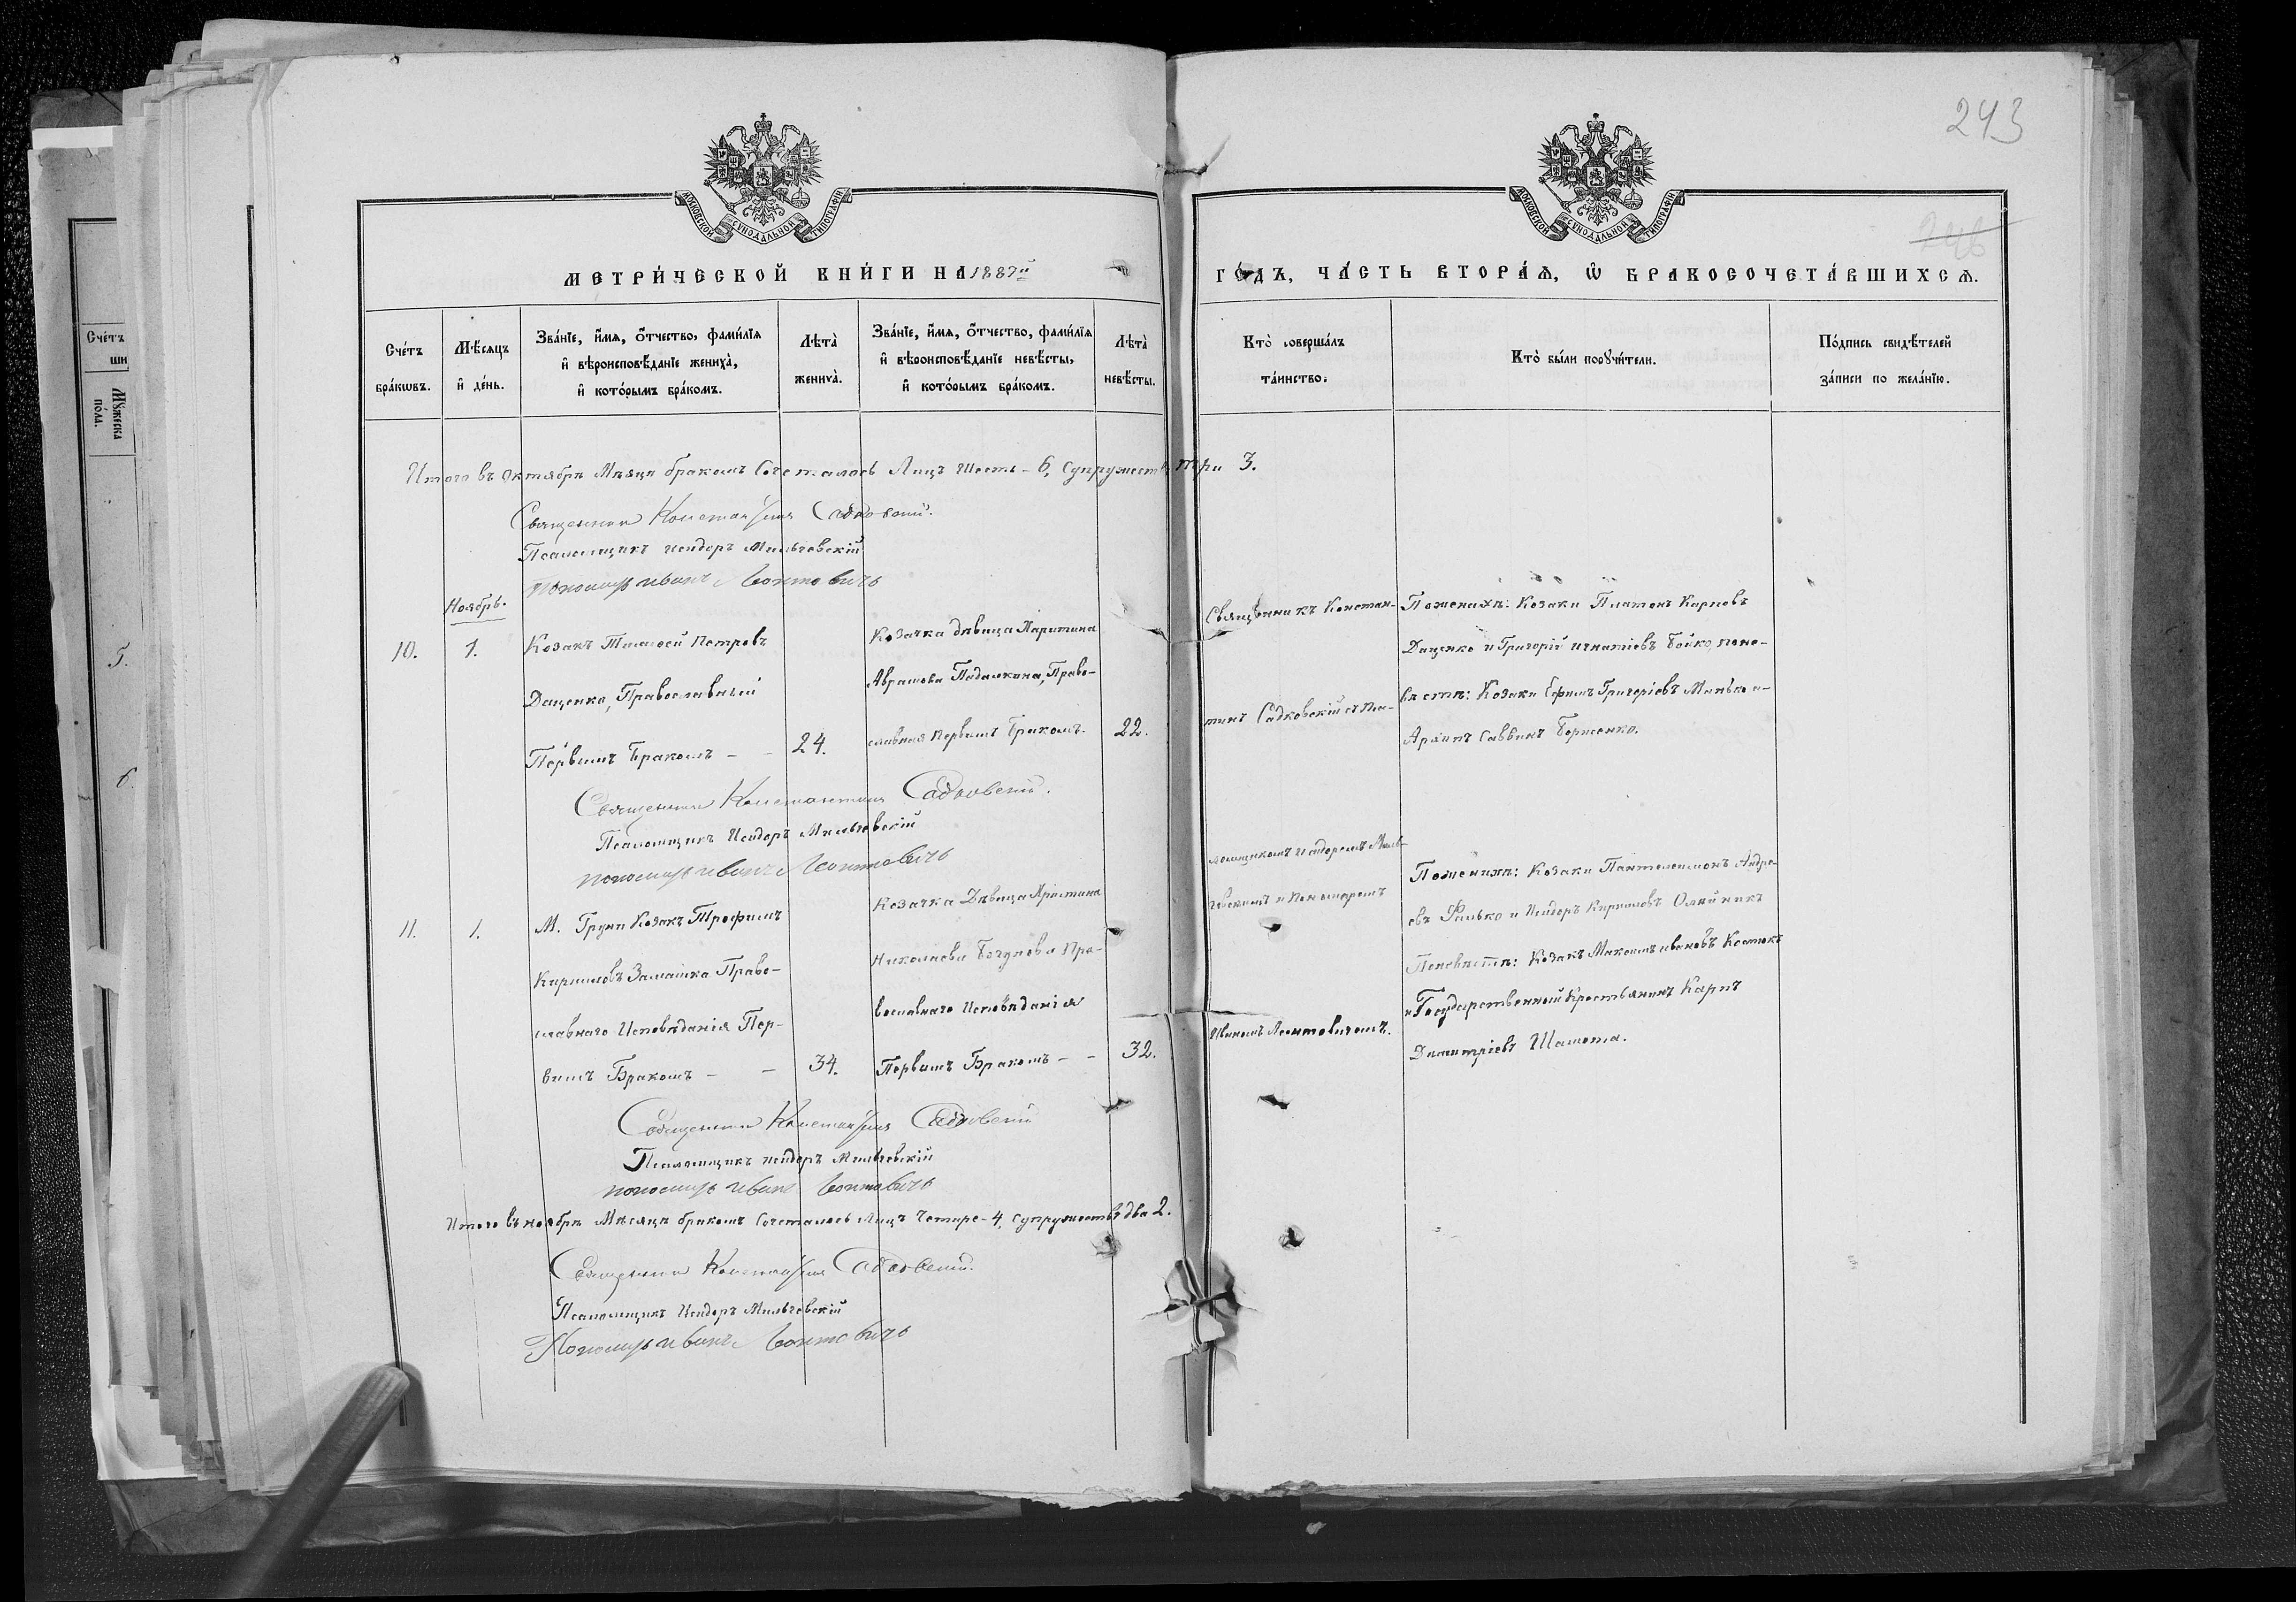 243
246
МОСКОВСКОЙ СУНОДАЛЬНОЙ ТИПОГРАФІИ
МОСКОВСКОЙ СУНОДАЛЬНОЙ ТИПОГРАФІИ
МЕТРИ́ЧЕСКОЙ КНИ́ГИ НА 1887й
ГО́ДЪ, ЧА́СТЬ ВТОРА́Ѧ, Ѡ БРАКОСОЧЕТА́ВШИХСѦ.
Сче́тъ
бра́кѡвъ.
Мѣ́сѧцъ
и҆ де́нь.
Зва́нїе, и҆́мѧ, ѻ҆́тчество, фами́лїѧ
и҆ вѣроисповѣ́данїе жениха̀,
и҆ кото́рымъ бра́комъ.
Лѣта̀
жениха̀.
Зва́нїе, и҆́мѧ, ѻ҆́тчество, фами́лїѧ
и҆ вѣроисповѣ́данїе невѣ́сты,
и҆ кото́рымъ бра́комъ.
Лѣта̀
невѣ́сты.
Кто̀ соверша́лъ
та́инство.
Кто̀ бы́ли порꙋчи́тели.
По́дпись свидѣ́телей
за́писи по жела́нїю.
Сче́тъ
Мꙋ́жеска
по́ла.
5.
6.
Итого въ Октябрѣ Мѣяцѣ бракомъ Сочеталось Лицъ Шесть - 6, Супружествъ три 3.
Священникъ Константинъ Садковскій.
Псаломщикъ Исидоръ Мильчевскій
Пономарь Иванъ Леонтовичъ
Ноябрь.
10.
1.
Козакъ Тимофей Петровъ
Даценко, Православный
Первымъ Бракомъ - -
24.
Козачка дѣвица Харитина
Аврамова Подалкина, Право-
славная Первымъ Бракомъ.
22.
Священникъ Констан-
тинъ Садковскій съ Пса-
ломщикомъ Исидоромъ Миль-
чевскимъ и Пономаремъ
Иваномъ Леонтовичомъ.
Поженихѣ: Козаки Платонъ Карповъ
Даценко и Григорій Игнатіевъ Бойко, поне-
вѣстѣ: Козаки Ефимъ Григоріевъ Минько и-
Архипъ Саввинъ Борисенко.
Священникъ Константинъ Садковскій.
Псаломщикъ Исидоръ Мильчевскій
Пономарь Иванъ Леонтовичъ
11.
1.
М. Груни Козакъ Трофимъ
Кириловъ Замашка Право-
славнаго Исповѣданія Пер-
вымъ Бракомъ - -
34.
Козачка Дѣвица Христина
Николаева Богунова Пра-
вославнаго Исповѣданія
Первымъ Бракомъ - -
32.
Поженихѣ: Козаки Пантелеимонъ Андре-
евъ Филько и Исидоръ Кириловъ Олийникъ
Поневѣстѣ: Козакъ Максимъ Ивановъ Костюкъ
и Государственный Крестьянинъ Карпъ
Димитріевъ Шамота.
Священникъ Константинъ Садковскій
Псаломщикъ Исидоръ Мильчевскій
Пономарь Иванъ Леонтовичъ
Итого въ ноябрѣ Мѣсяцѣ бракомъ Сочеталось Лицъ Четыре - 4, супружествъ два 2.
Священникъ Константинъ Садковскій.
Псаломщикъ Исидоръ Мильчевскій
Пономарь Иванъ Леонтовичъ